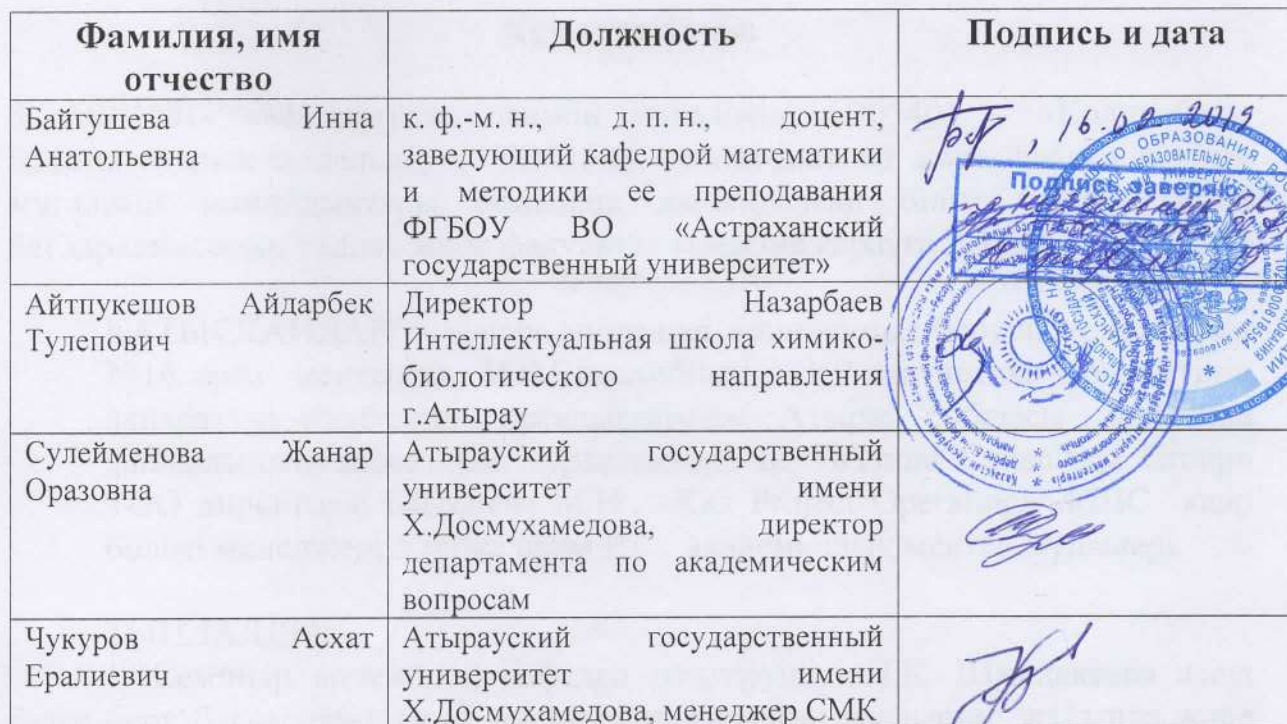 Фамилия, имя
отчество
Должность
Подпись и дата
Байгушева Инна
Анатольевна
к. ф.-м. н., д. п. н., доцент,
заведующий кафедрой математики
и методики ее преподавания
ФГБОУ ВО «Астраханский
государственный университет»
2019
Подпись заверяю
ОБРАЗОВАНИЯ
Айтпукешов Айдарбек
Тулепович
Директор Назарбаев
Интеллектуальная школа химико-
биологического направления
г.Атырау
Сулейменова Жанар
Оразовна
Атырауский государственный
университет имени
Х.Досмухамедова, директор
департамента по академическим
вопросам
Чукуров Асхат
Ералиевич
Атырауский государственный
университет имени
Х.Досмухамедова, менеджер СМК